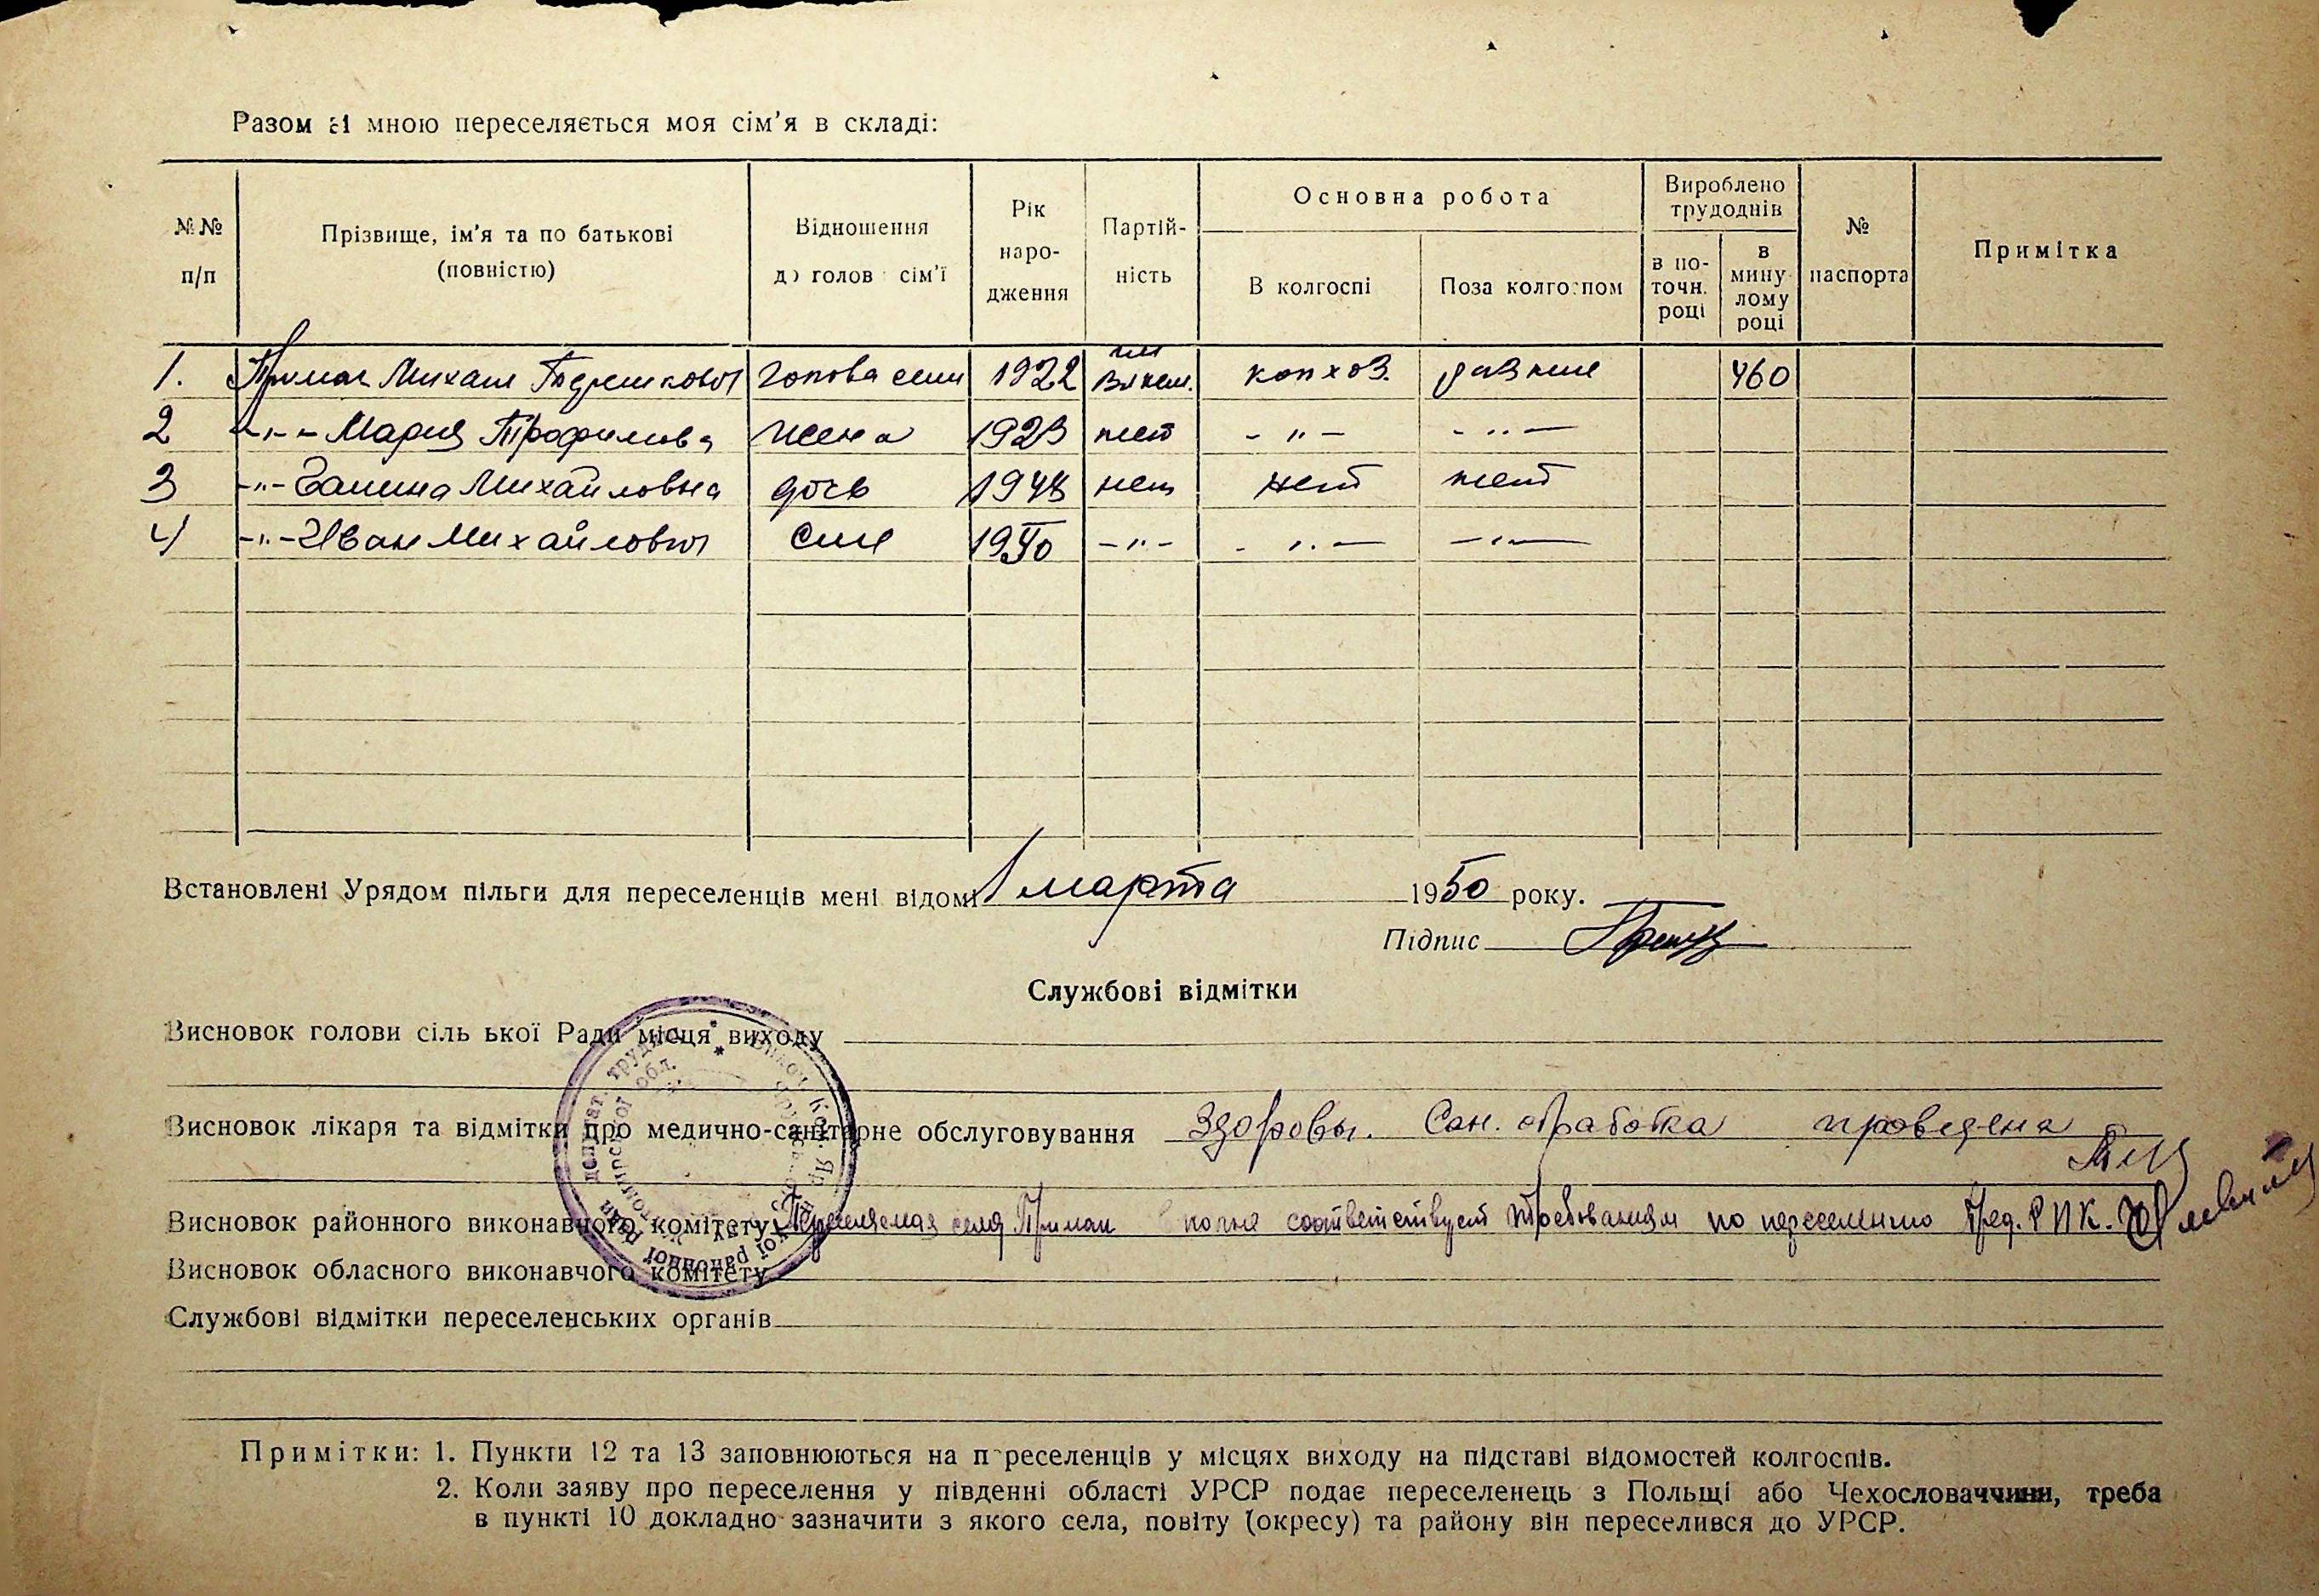 Разом зі мною переселяється моя сім'я в складі:
№№ п/п
Прізвище, ім'я та по батькові (повністю)
Відношення до голов сім'ї
Рік народження
Партійність
Основна робота
В колгоспі
Поза колгоспом
Вироблено трудоднів
в поточн. році
в минулому році
№ паспорта
Примітка
1. Примак Михаил голова семи 1922 колхоз. разные 460
2 -"- Мария Трофимовна жена 1923 нет -"- -"-
3 -"- Галина Михайловна дочь 1948 нет нет нет
4 -"- Иван Михайлович сын 1950 -"- -"- -"-
Встановлені Урядом пільги для переселенців мені відомі 1 марта 1950 року.
Підпис
Службові відмітки
Висновок голови сіль ької Ради місця виходу
Висновок лікаря та відмітки про медично-санітарне обслуговування Здоровы. Сан. обработка проведена
Висновок районного виконавчого комітету Переселяемая семя Примак соответствует требованиям по переселению Пред. РИК.
Висновок обласного виконавчого комітету
Службові відмітки переселенських органів
Примітки: 1. Пункти 12 та 13 заповнюються на переселенців у місцях виходу на підставі відомостей колгоспів.
2. Коли заяву про переселення у південні області УРСР подає переселенець з Польщі або Чехословаччини, треба
в пункті 10 докладно зазначити з якого села, повіту (окресу) та району він переселився до УРСР.